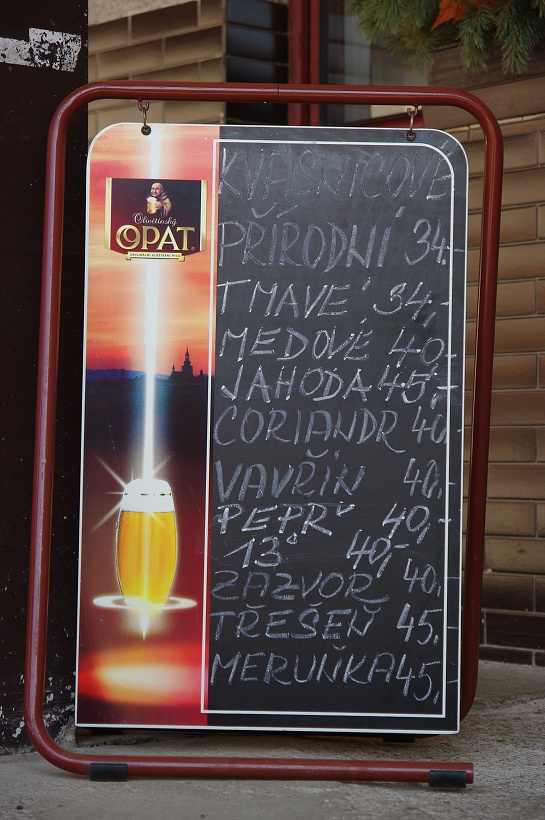 Olivětínský
OPAT
KVASNICOVÉ
PŘÍRODNÍ 34.-
TMAVÉ 34,-
MEDOVÉ 40,-
JAHODA 45,-
CORIANDR 40
VAVŘÍN 40,-
PEPŘ 40,-
13° 40,-
ZÁZVOR 40,-
TŘEŠEŇ 45,-
MERUŇKA 45,-